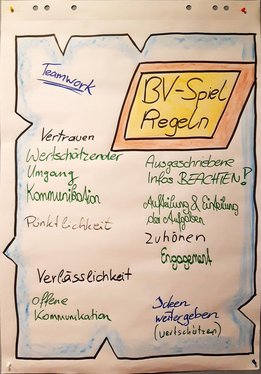 Teamwork
BV-Spiel
Regeln
Vertrauen
Wertschätzender
Umgang
Kommunikation
Pünktlichkeit
Verlässlichkeit
offene
Kommunikation
Ausgeschriebene
Infos BEACHTEN!
Aufteilung & Einteilung
der Aufgaben
Zuhören
Engagement
Ideen
weitergeben
(wertschätzen)